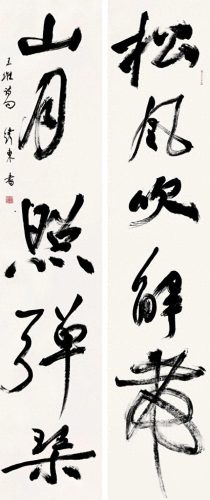 松风吹解带
山月照弹琴
王维诗句
东书